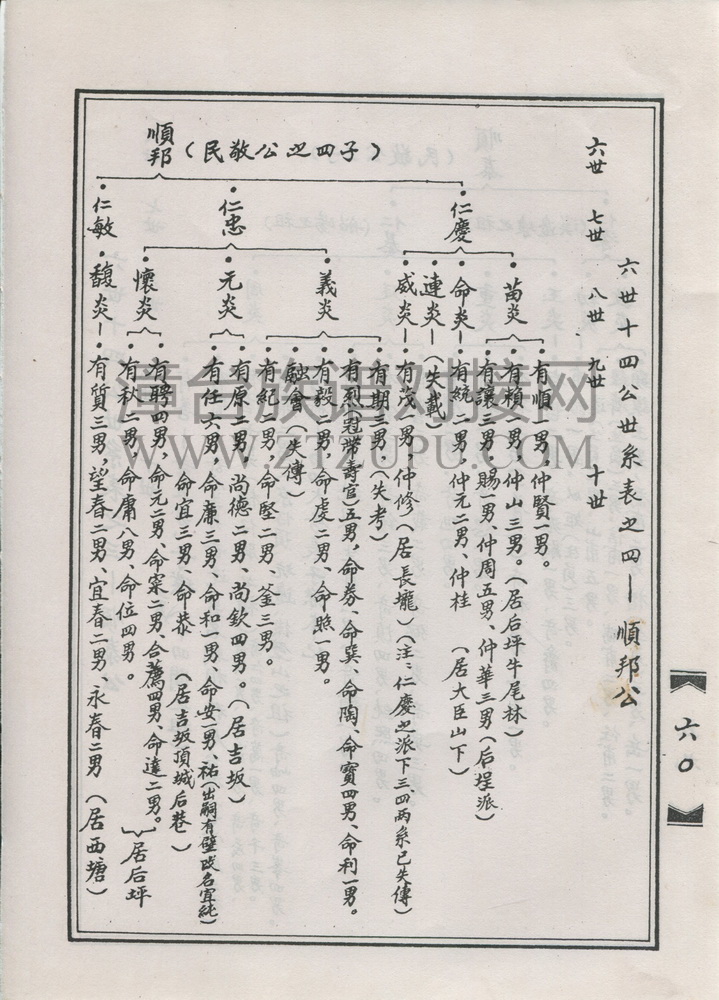 六世十四公世系表之四—順邦公
六世 七世 八世 九世 十世
順邦（民敬公之四子）
仁慶
苗炎
有順一男，仲賢一男。
有賴一男，仲山三男。（居后坪牛尾林）
有讓三男，賜一男、仲周五男、仲華三男（后埕派）
命炎—有統二男，仲元二男、仲桂（居大臣山下）
連炎—（失載）
威炎—有茂一男，仲修（居長壠）（注：仁慶之派下三、四兩系已失傳）
仁忠
義炎
有期三男，（失考）
有烈（冠帶壽官）五男，命券、命巽、命陶、命寶四男、命利一男。
有毅二男，命虔二男、命照一男。
融會（失傳）
有紀二男，命堅二男、釜三男。
元炎
有原二男，尚德二男、尚欽四男。（居吉坂）
有任六男，命廉三男、命和一男、命安一男、祐（出嗣有壁改名宜純）
命宜三男、命恭（居吉坂頂城后巷）
懷炎
有聘四男，命元二男、命寀二男、合薦四男、命達二男。
有秋二男，命庸八男、命位四男。
居后坪
仁敏
馥炎—有質三男，望春二男、宜春二男、永春二男（居西塘）
六〇
漳台族谱对接网
WWW.ZTZUPU.COM